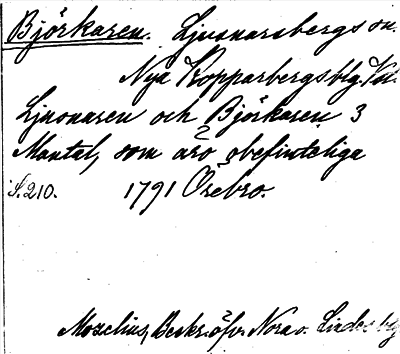 Björkaren. Ljusnarsbergs sn.
Nya Kopparbergs blg. Vm.
Ljusnaren och Björkaren 3
Mantal, som äro obefinteliga
S. 210. 1791 Örebro.
Mozelius, Beskr. öfv. Nora o. Lindes blg